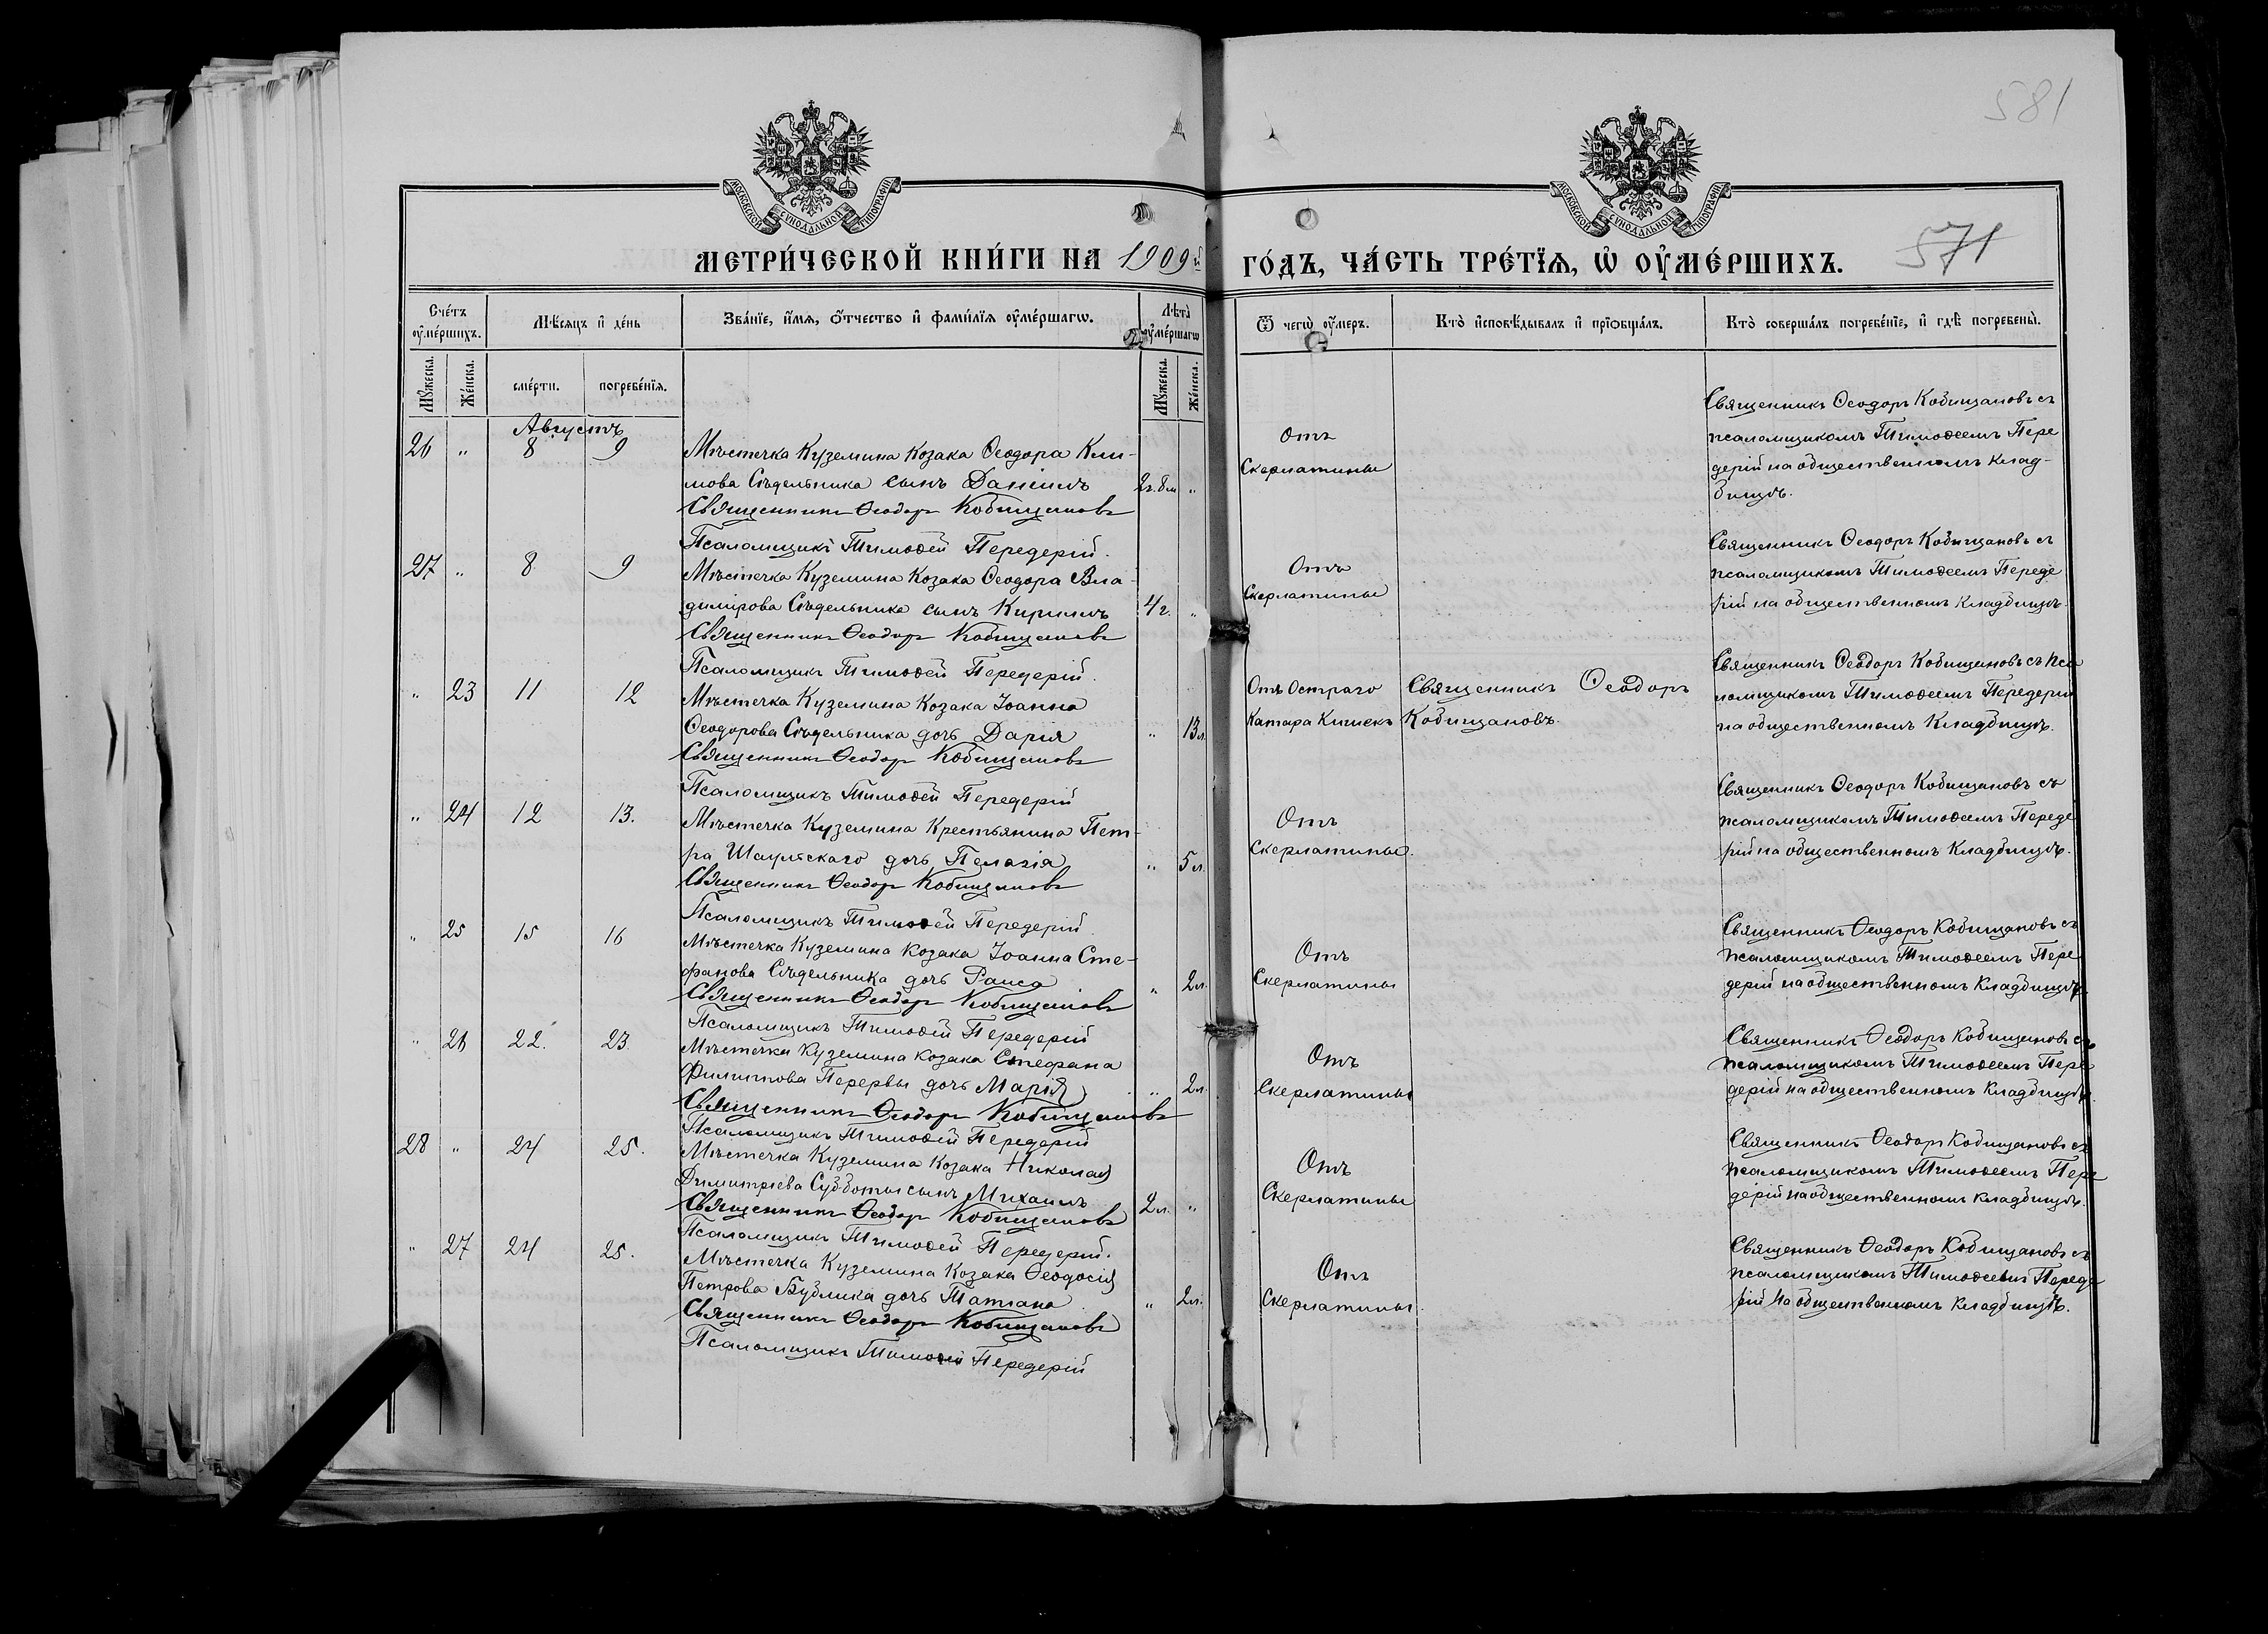 581
МОСКОВСКОЙ СѴНОДАЛЬНОЙ ТИПОГРАФІИ
МОСКОВСКОЙ СѴНОДАЛЬНОЙ ТИПОГРАФІИ
МЕТРИ́ЧЕСКОЙ КНИ́ГИ НА 1909й ГО́ДЪ, ЧА́СТЬ ТРЕ́ТІЯ, Ѡ ОУМЕ́РШИХЪ.
571
Сче́тъ оуме́ршихъ.
Мѣ́сяцъ и де́нь
Зва́ніе, и́мя, о́тчество и фами́лія оуме́ршагѡ.
Лѣта̀ оуме́ршагѡ
Ѿ чегѡ̀ оу́меръ.
Кто̀ исповѣ́дывалъ и пріобща́лъ.
Кто̀ соверша́лъ погребе́ніе, и гдѣ̀ погребены̀.
Мꙋ́жеска. Же́нска.
сме́рти. погребе́нія.
Мꙋ́жеска. Же́нска.
Августъ
26 " 8 9
Мѣстечка Куземина Козака Ѳеодора Кли-
мова Сѣдельника сынъ Даніилъ
2г. 8м "
Священникъ Ѳеодоръ Кобищановъ
Псаломщикъ Тимоѳей Передерій.
Отъ
Скерлатины
Священникъ Ѳеодоръ Кобищановъ съ
псаломщикомъ Тимоѳеемъ Пере
дерій на общественномъ клад-
бищѣ.
27 " 8 9
Мѣстечка Куземина Козака Ѳеодора Вла-
димірова Сѣдельника сынъ Кириллъ
4г. "
Священникъ Ѳеодоръ Кобищановъ
Псаломщикъ Тимоѳей Передерій.
Отъ
Скерлатины
Священникъ Ѳеодоръ Кобищановъ съ
псаломщикомъ Тимоѳеемъ Переде
рій на общественномъ кладбищѣ.
" 23 11 12
Мѣстечка Куземина Козака Іоанна
Ѳеодорова Сѣдельника дочь Дарія
" 13л.
Священникъ Ѳеодоръ Кобищановъ
Псаломщикъ Тимоѳей Передерій
Отъ Остраго
Катара Кишекъ
Священникъ Ѳеодоръ
Кобищановъ.
Священникъ Ѳеодоръ Кобищановъ съ пса
ломщикомъ Тимоѳеемъ Передерій
на общественномъ Кладбищѣ.
" 24 12 13.
Мѣстечка Куземина Крестьянина Пет-
ра дочь Пелагія
" 5л.
Священникъ Ѳеодоръ Кобищановъ
Псаломщикъ Тимоѳей Передерій.
Отъ
Скерлатины.
Священникъ Ѳеодоръ Кобищановъ съ
псаломщикомъ Тимоѳеемъ Переде
рій на общественномъ Кладбищѣ.
" 25 15 16
Мѣстечка Куземина Козака Іоанна Сте-
фанова Сѣдельника дочь Раиса
" 2л.
Священникъ Ѳеодоръ Кобищановъ
Псаломщикъ Тимоѳей Передерій
Отъ
Скерлатины
Священникъ Ѳеодоръ Кобищановъ съ
псаломщикомъ Тимоѳеемъ Пере
дерій на общественномъ Кладбищѣ.
" 26 22. 23.
Мѣстечка Куземина Козака Стефана
Филиппова Перервы дочь Марія
" 2л.
Священникъ Ѳеодоръ Кобищановъ
Псаломщикъ Тимоѳей Передерій
Отъ
Скерлатины
Священникъ Ѳеодоръ Кобищановъ съ
псаломщикомъ Тимоѳеемъ Пере
дерій на общественномъ Кладбищѣ.
28 " 24 25.
Мѣстечка Куземина Козака Николая
Димитріева Субботы сынъ Михаилъ
2л. "
Священникъ Ѳеодоръ Кобищановъ
Псаломщикъ Тимоѳей Передерій.
Отъ
Скерлатины
Священникъ Ѳеодоръ Кобищановъ съ
псаломщикомъ Тимоѳеемъ Пере
дерій на общественномъ кладбищѣ.
" 27 24 25.
Мѣстечка Куземина Козака Ѳеодосія
Петрова Бублика дочь Татіана
" 2л.
Священникъ Ѳеодоръ Кобищановъ
Псаломщикъ Тимоѳей Передерій
Отъ
Скерлатины.
Священникъ Ѳеодоръ Кобищановъ съ
псаломщикомъ Тимоѳеемъ Переде
рій на общественномъ кладбищѣ.